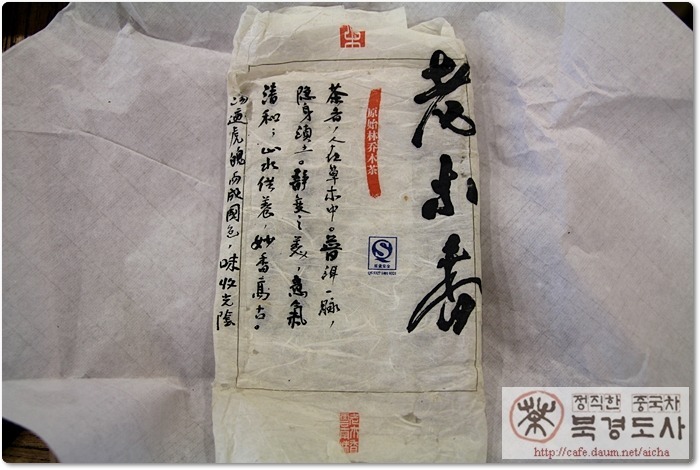 老木香
原始林乔木茶
茶者，人在草木中。普洱一脉，
隐身滇土。静变之美，意氣
清和；山水供养，妙香高古。
汤逼虎魄而殷國色，味收光陰
정직한 중국차
북경도사
http://cafe.daum.net/aicha